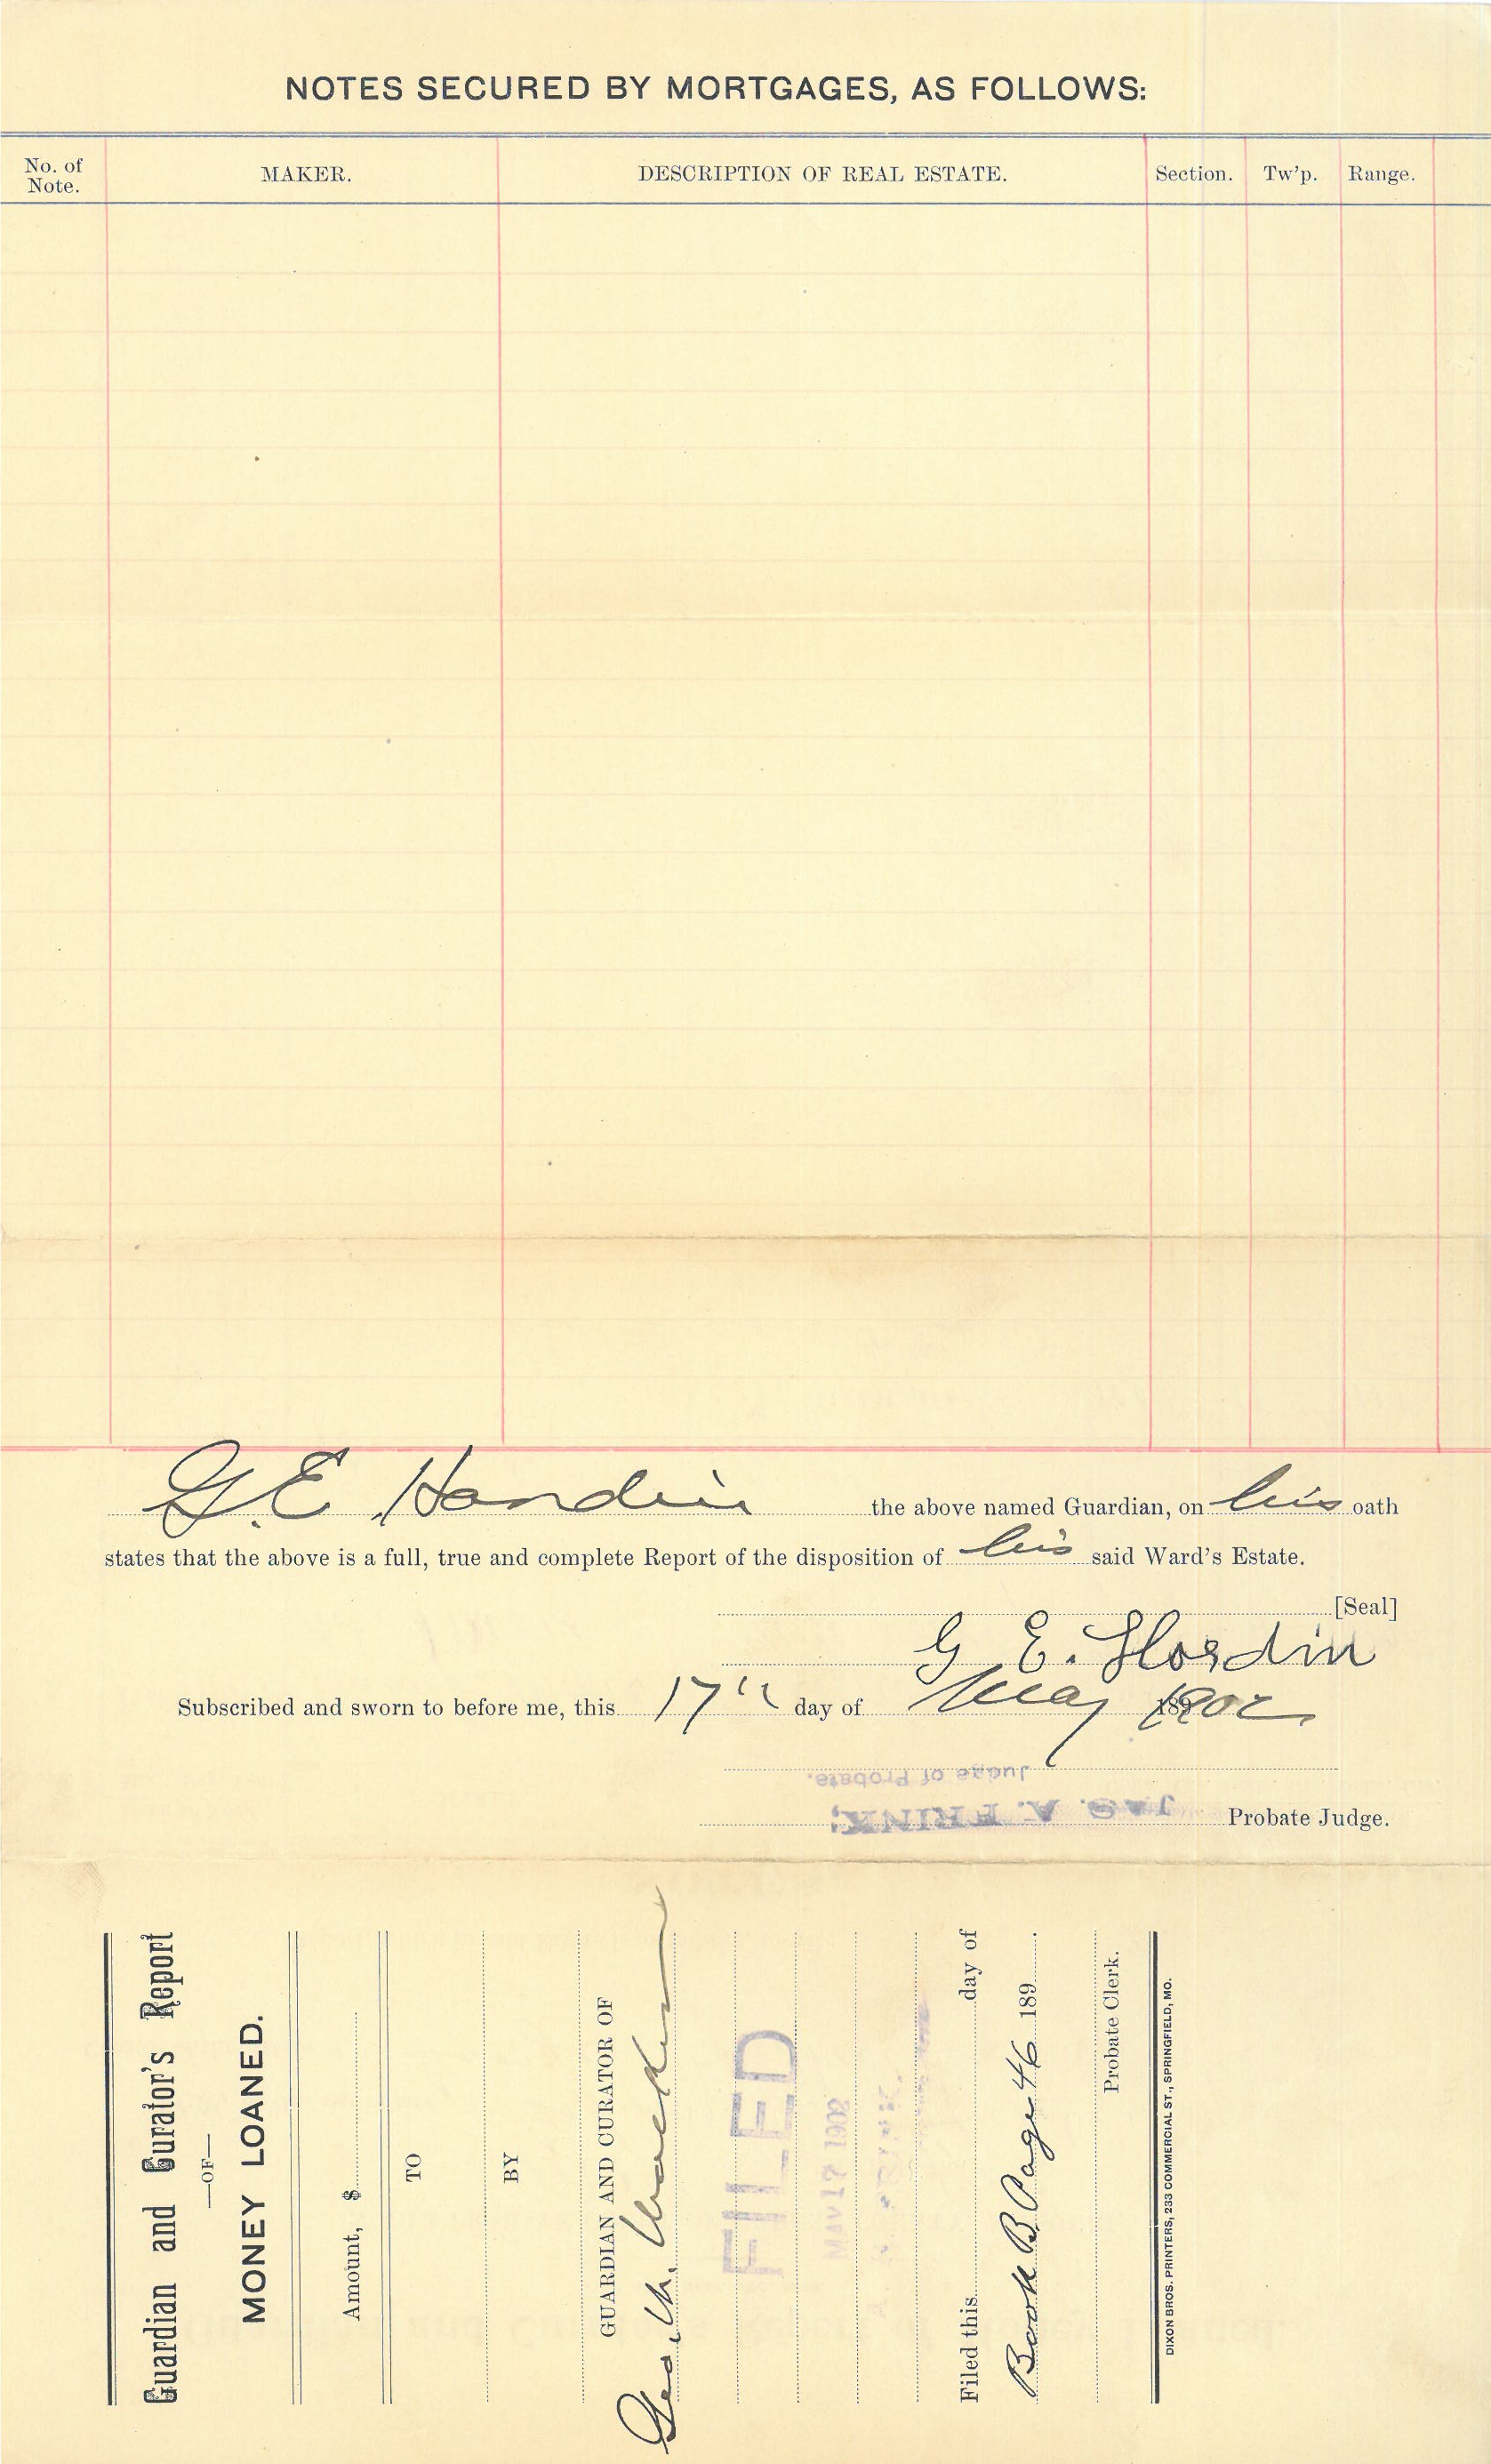 NOTES SECURED BY MORTGAGES, AS FOLLOWS:
No. of Note. MAKER. DESCRIPTION OF REAL ESTATE. Section. Tw'p. Range.
G.E. Hardin the above named Guardian, on his oath
states that the above is a full, true and complete Report of the disposition of his said Ward's Estate.
[Seal]
G E. Hardin
Subscribed and sworn to before me, this 17" day of May 1902
Judge of Probate.
JAS. A. FRINK, Probate Judge.
Guardian and Curator's Report
—OF—
MONEY LOANED.
Amount, $
TO
BY
GUARDIAN AND CURATOR OF
Geo. M.
FILED
MAY 17 1902
Filed this day of
Book B Page 46 189 .
Probate Clerk.
DIXON BROS. PRINTERS, 233 COMMERCIAL ST., SPRINGFIELD, MO.